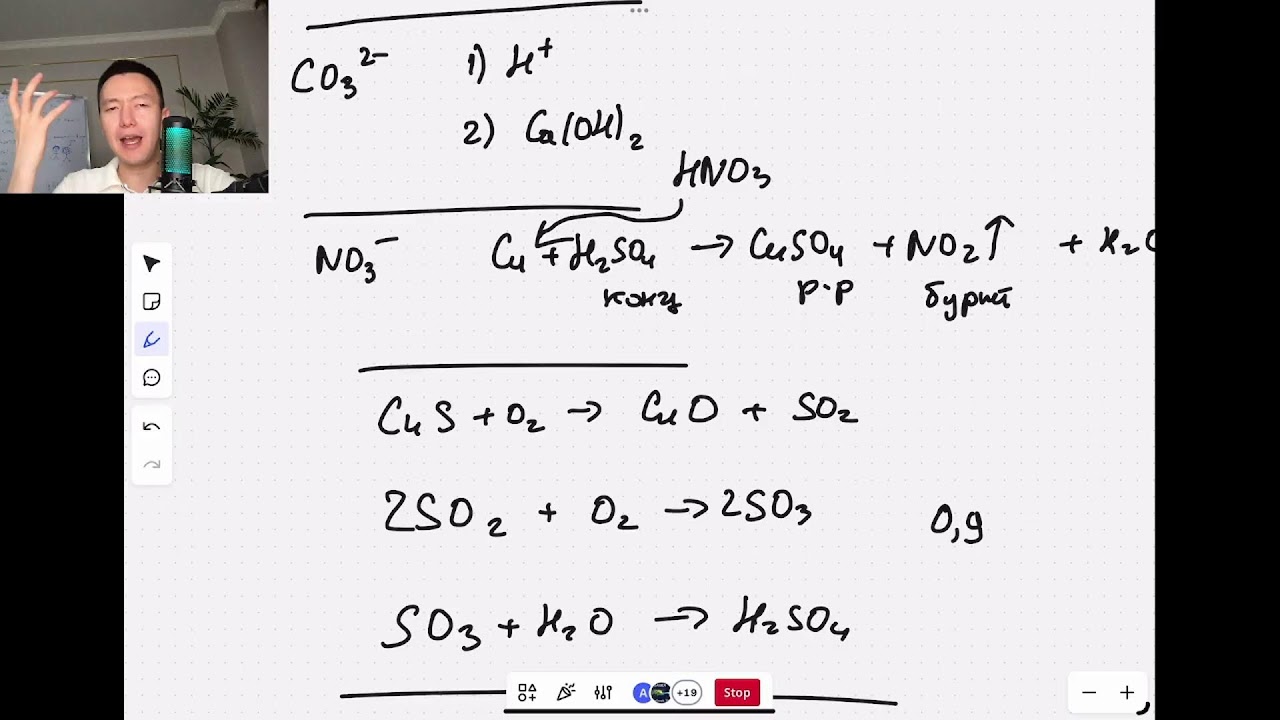 CO₃²⁻ 1) H⁺
2) Ca(OH)₂
HNO₃
NO₃⁻ Cu + H₂SO₄ → CuSO₄ + NO₂↑ + H₂O
конц р-р бурый
CuS + O₂ → CuO + SO₂
2SO₂ + O₂ → 2SO₃ 0,9
SO₃ + H₂O → H₂SO₄
A +19 Stop